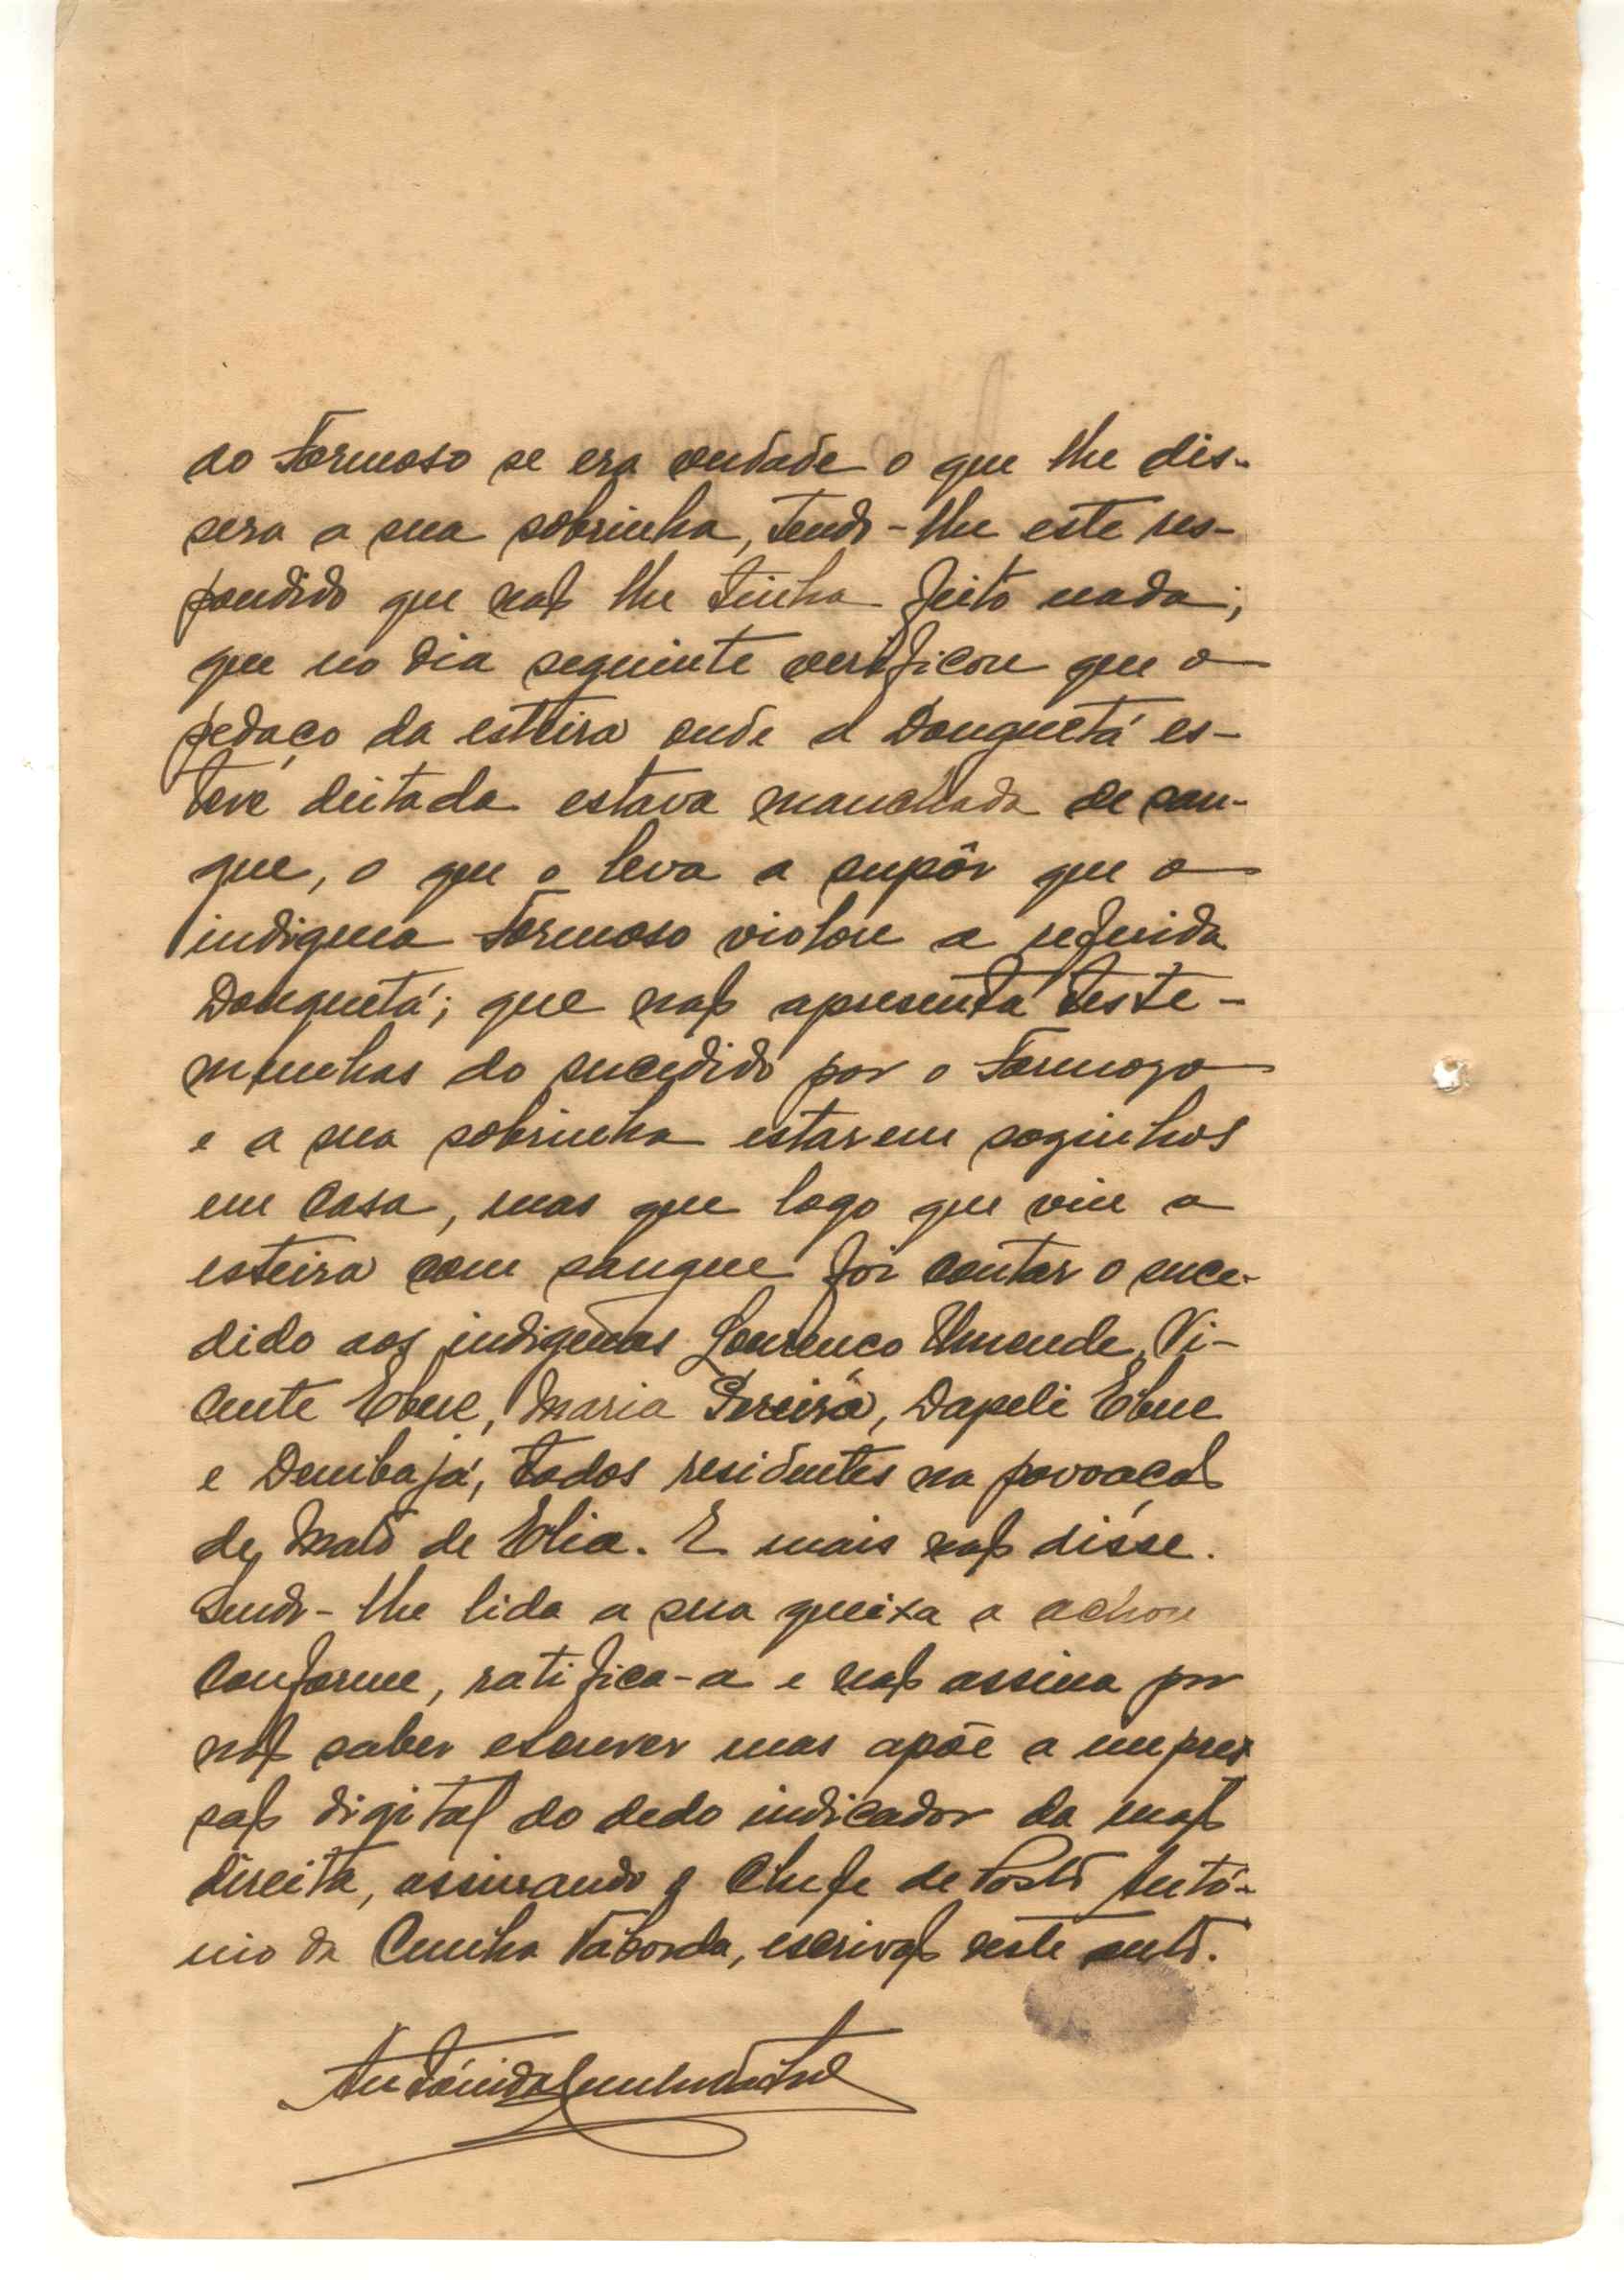 ao Formoso se era verdade o que lhe dis-
sera a sua sobrinha, tendo-lhe este res-
pondido que não lhe tinha feito nada;
que no dia seguinte verificou que o
pedaço da esteira onde a Donguetá es-
teve deitada estava manchada de san-
gue, o que o leva a supôr que o
indigena Formoso violou a referida
Donguetá; que não apresenta teste-
munhas do sucedido por o Formozo
e a sua sobrinha estarem sozinhos
em casa, mas que logo que viu a
esteira com sangue foi contar o suce-
dido aos indigenas Lourenço Umende, Vi-
cente Ebue, Maria Pereira, Dapeli Ebue
e Dembajá, todos residentes na povoação
de Mato de Elia. E mais não disse.
Sendo-lhe lida a sua queixa a achou
conforme, ratifica-a e não assina por
não saber escrever mas apõe a impres
são digital do dedo indicador da mão
direita, assinando o Chefe de Posto Antó-
nio da Cunha Taborda, escrivão neste auto.